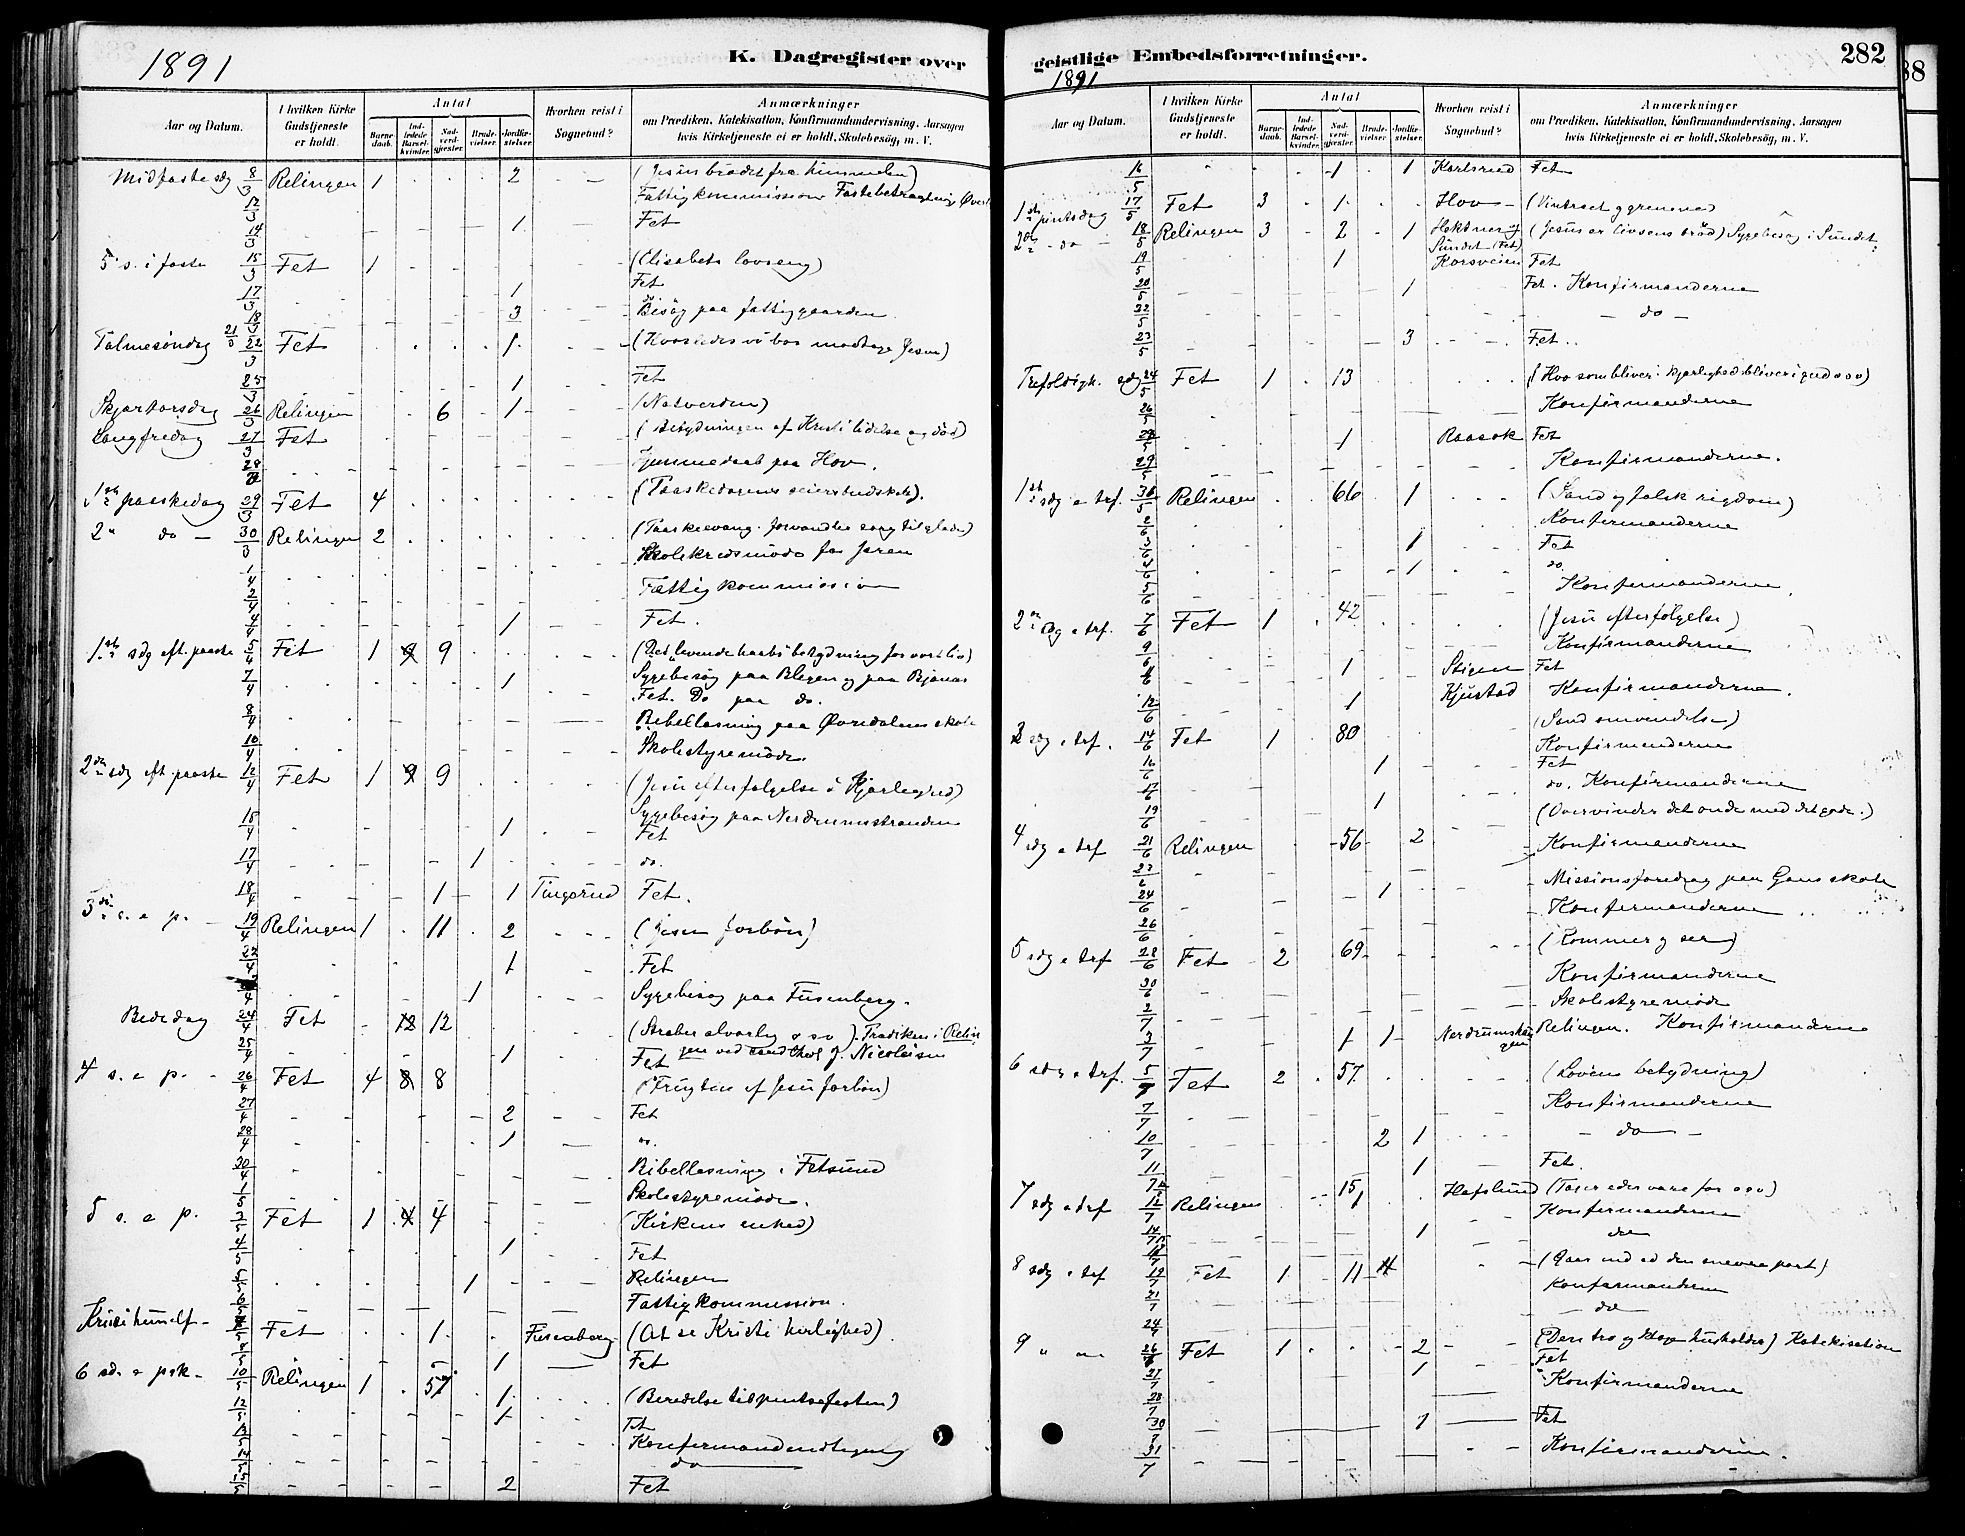 1891
K. Dagregister over
Aar og Datum.
I hvilken Kirke Gudstjeneste er holdt.
Antal
Barne-daab.
Ind-ledede Barsel-kvinder.
Nad-verd-gjester.
Brude-vielser.
Jordfæ-stelser.
Hvorhen reist i Sognebud?
Anmærkninger
om Prædiken, Katekisation, Konfirmandundervisning, Aarsagen
hvis Kirketjeneste ei er holdt, Skolebesøg, m. V.
Midfaste sdg 8/3 Relingen 1 2 (Jesus brødet fra himmelen)
12/3 Fattigkommission Fastebetragtning
14/3 1 Fet
5 s. i faste 15/3 Fet 1 (Elisabets lovsang)
17/3 1 Fet
18/3 3 Besøg paa fattiggaarden
Palmesøndag 22/3 Fet 1 (Hvorledes vi bør modtage Jesus)
25/3 1 Fet
Skjærtorsdag 26/3 Relingen 6 1 (Natverden)
Langfredag 27/3 Fet (Betydningen af Kristi lidelse og død)
28/3 Hjemmedaab paa Hov.
1ste paaskedag 29/3 Fet 4 (Paaskedagens seiersbudskab).
2 do 30/3 Relingen 2 (Paaskeevang. forvandler sorg til glæde)
1/4 Skolekredsmøde for Jaren
2/4 Fattigkommission
4/4 1 Fet.
1ste sdg eft. paaske 5/4 Fet 1 9 9 (Det levende haabs betydning for vort liv)
7/4 1 Sygebesøg paa Blegen og paa Bjanes
Fet. Do paa do.
8/4 Bibellæsning paa Øvredalens skole
10/4 Skolestyremøde.
2den sdg eft. paaske 12/4 Fet 1 9 9 (Jesu efterfølgelse i Kjærlighed)
Sygebesøg paa Nerdrumsstranden
15/4 1 Fet
17/4 1 do.
18/4 1 1 Tingsrud Fet.
3die s. e. p. 19/4 Relingen 1 11 2 (Jesu forbøn)
22/4 1 Fet
1 Sygebesøg paa Fusenberg.
Bededag 24/4 Fet 12 12 (Stræber alvorlig o s v). Prædiken i Relin-
gen ved cand theol J. Nicolaisen
25/4 1 Fet
4 s. e. p. 26/4 Fet 4 8 8 (Frugten af Jesu forbøn)
27/4 2 Fet
28/4 1 do.
30/4 Bibellæsning i Fetsund
1/5 Skolestyremøde.
5 s. e. p. 3/5 Fet 1 4 4 (Kirkens enhed)
4/5 1 Fet
5/5 1 Relingen
6/5 Fattigkommission.
Kristi himelf. 7/5 Fet 1 Fusenberg (At se Kristi herlighed)
8/5 1 Fet
6 sd. e. psk. 10/5 Relingen 1 57 1 (Beredelse til pintsefesten)
12/5 1 Fet
13/5 Konfirmandmodtagning
14/5 do
15/5 2 Fet
geistlige Embedsforretninger.
1891
282
38
Aar og Datum.
I hvilken Kirke Gudstjeneste er holdt.
Antal
Barne-daab.
Ind-ledede Barsel-kvinder.
Nad-verd-gjester.
Brude-vielser.
Jordfæ-stelser.
Hvorhen reist i Sognebud?
Anmærkninger
om Prædiken, Katekisation, Konfirmandundervisning, Aarsagen
hvis Kirketjeneste ei er holdt, Skolebesøg, m. V.
16/5 1 1 Karlsrud Fet
1ste pintsdag 17/5 Fet 3 1 Hov (Vintræet og grenene)
2den do 18/5 Relingen 3 2 1 Heksner og Sundet (Fet) (Jesus er livsens brød) Sygebesøg i Sundet.
19/5 1 Korsveien Fet
20/5 1 Fet. Konfirmanderne
22/5 do
23/5 3 Fet.
Trefoldigh. sdg 24/5 Fet 1 13 (Hvo som bliver i kjærlighed bliver i gud o s v)
26/5 Konfirmanderne
28/5 1 Raasok Fet
29/5 Konfirmanderne.
1ste sdg e trf. 30/5 Relingen 66 1 (Sand og falsk rigdom)
2/6 Konfirmanderne
3/6 1 Fet
4/6 1 do.
5/6 Konfirmanderne.
2den sdg e trf. 7/6 Fet 1 42 (Jesu efterfølgelse)
9/6 Konfirmanderne
1 Stigen Fet
12/6 1 Kjustad Konfirmanderne.
3 sdg e trf. 14/6 Fet 1 80 (Sand omvendelse)
16/6 Konfirmanderne
1 Fet
17/6 do. Konfirmanderne
19/6 1 (Overvinder det onde med det gode.)
4 sdg e trf 21/6 Relingen 56 2 Konfirmanderne
23/6 Missionsforedrag paa Gans skole
24/6 1 Konfirmanderne
26/6
5 sdg e trf 28/6 Fet 2 69 (Kommer og ser)
30/6 Konfirmanderne
2/7 Skolestyremøde
3/7 1 1 Nerdrumshau-gen Relingen. Konfirmanderne
6 sdg e trf. 5/7 Fet 2 57 (Lovens betydning)
7/7 Konfirmanderne
10/7 2 1 do
11/7 1 Fet.
7 sdg e trf 12/7 Relingen 15 1 Hafslund (Tager eder vare for o s v)
14/7 1 Konfirmanderne
do
8 sdg e trf 19/7 Fet 1 11 4 (Gaar ind ad den snevre port)
21/7 Konfirmanderne
24/7 do
9 26/7 Fet 1 2 (Den tro og kloge husholder) Katekisation
27/7 1 Fet
28/7 Konfirmanderne
30/7 1 Fet
31/7 Konfirmanderne.